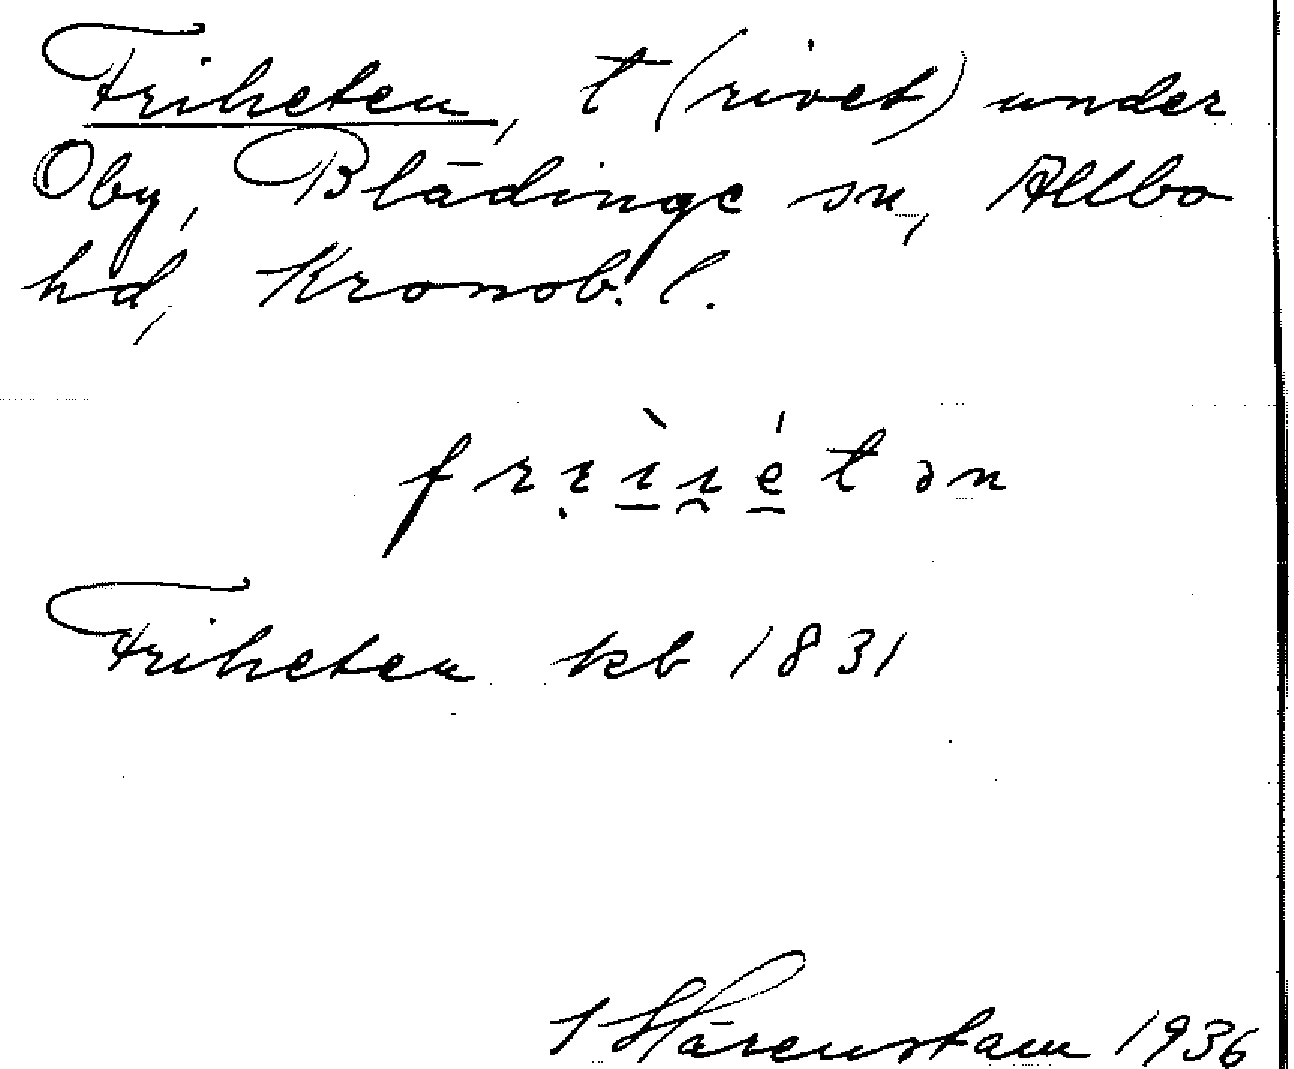 Friheten, t (rivet) under
Oby, Blädinge sn, Allbo
hd, Kronob. l.
Friheten kb 1831
Härenstam 1936